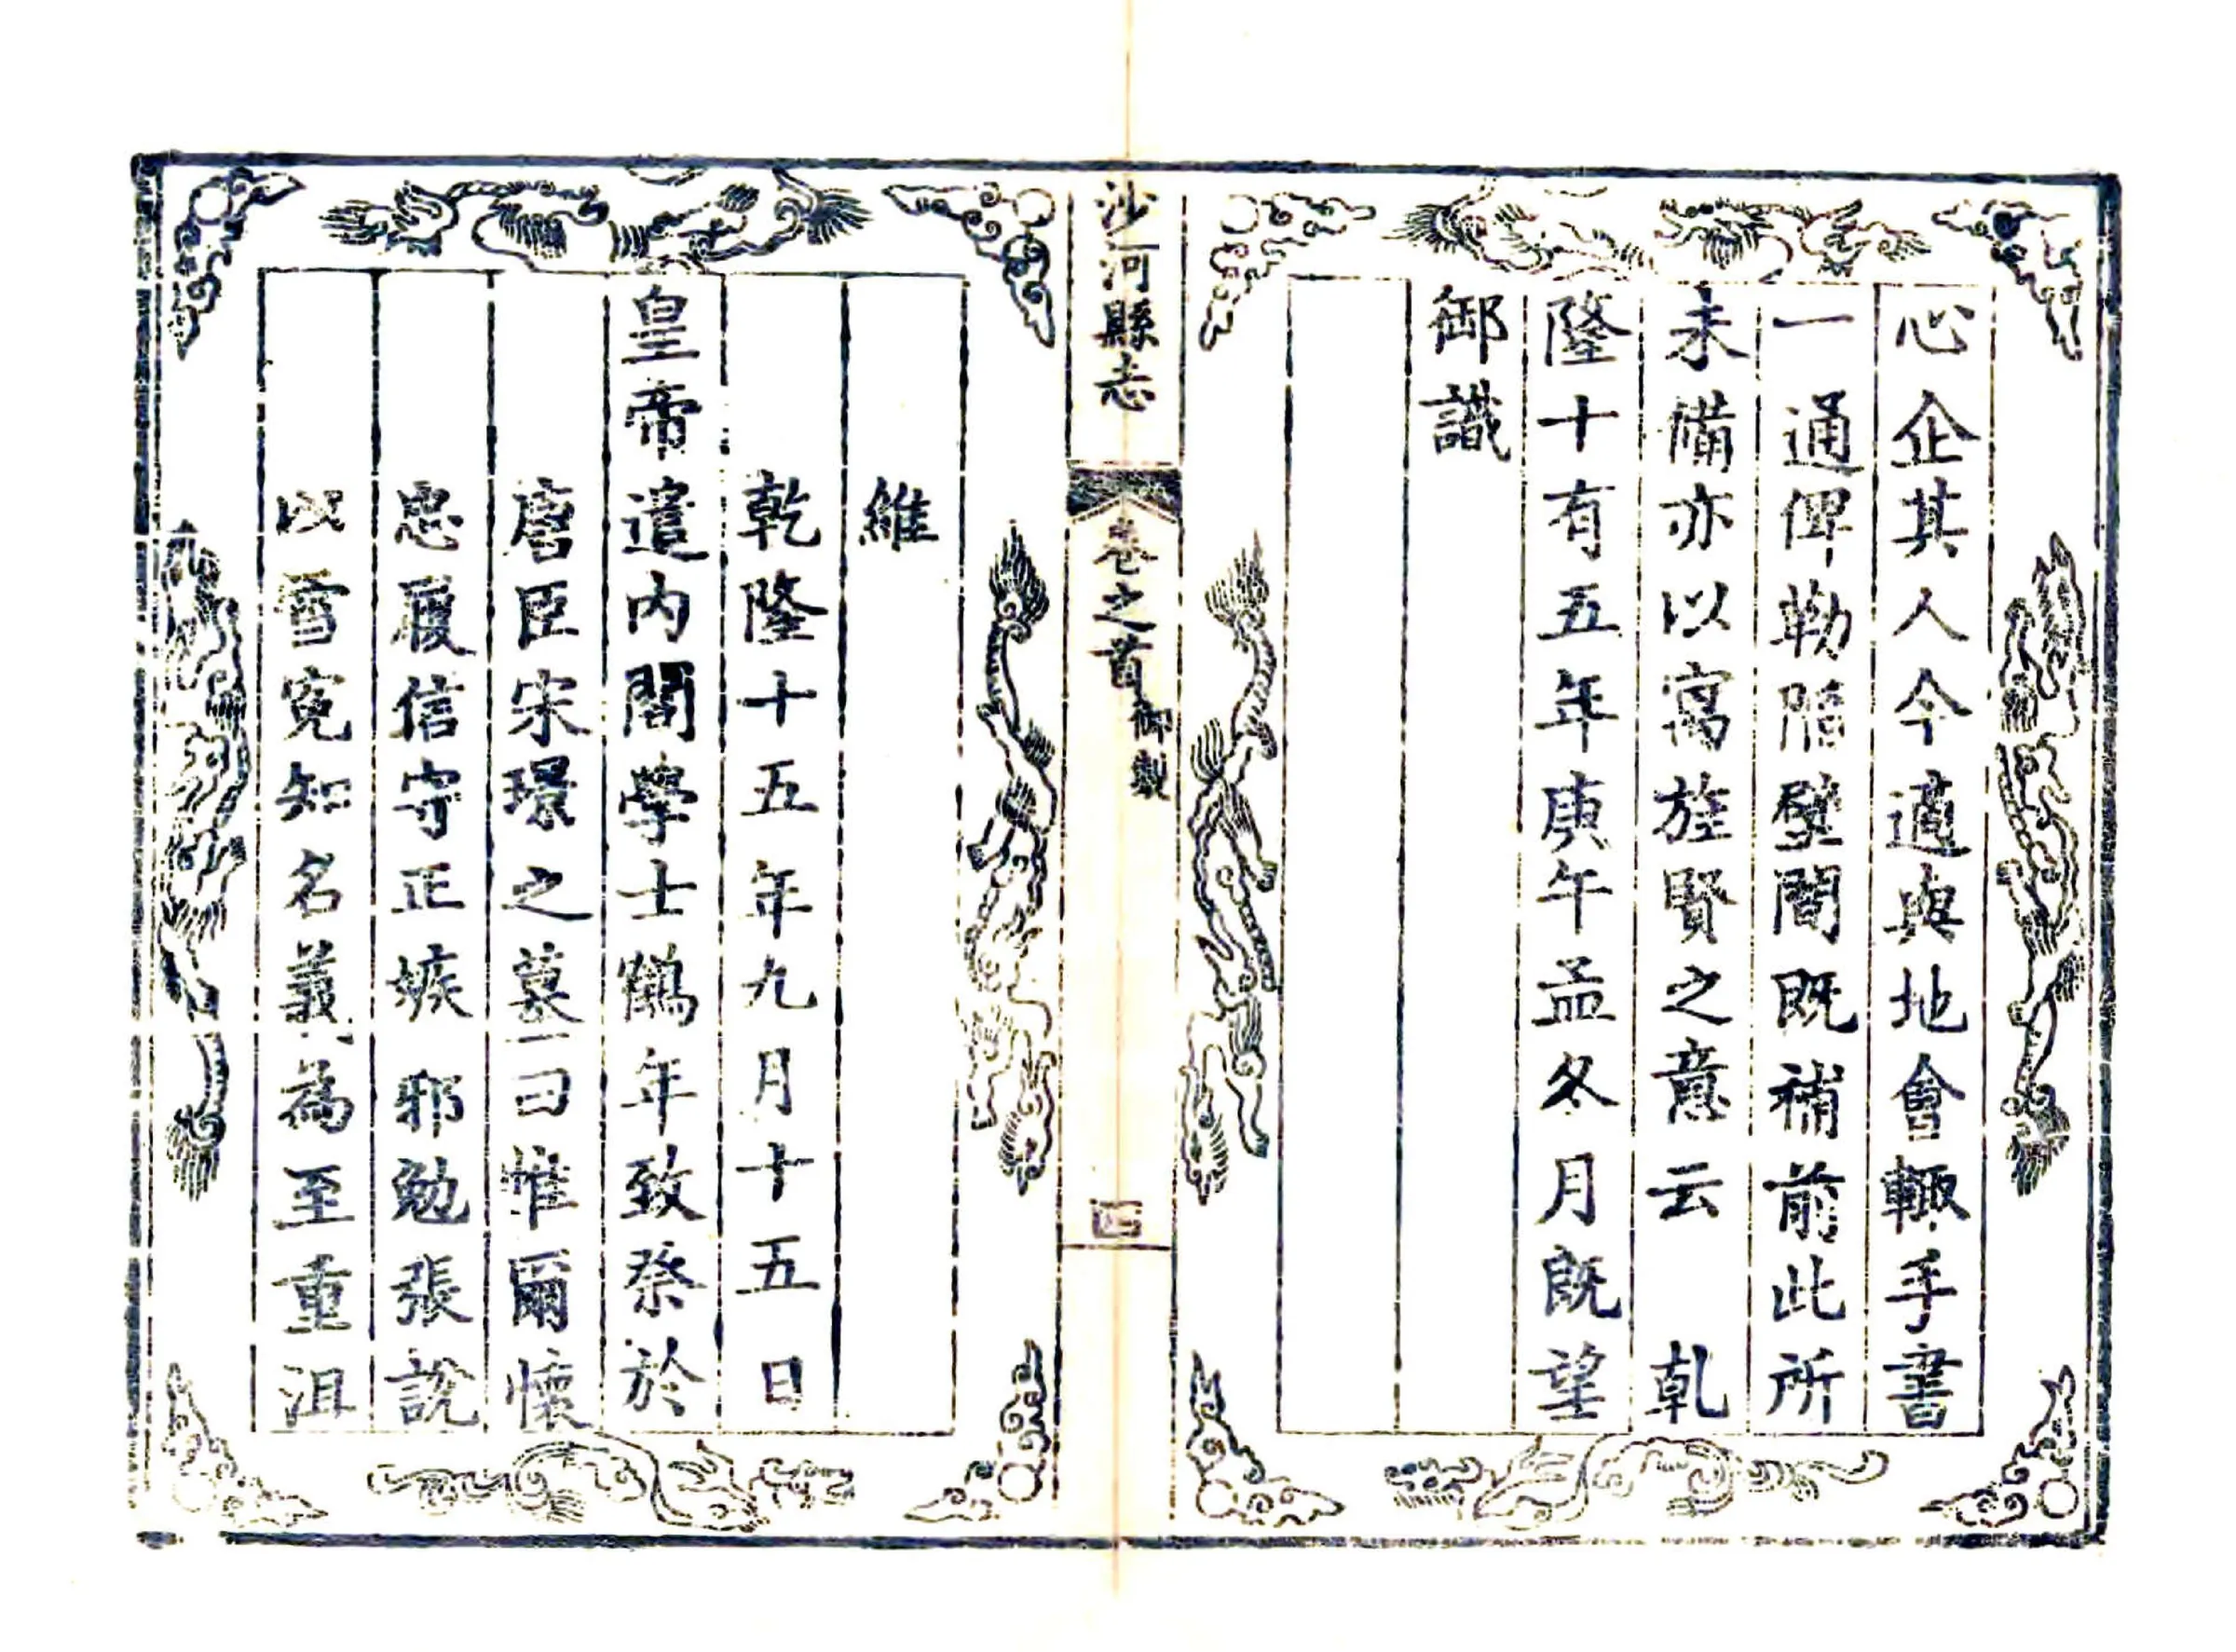 心企其人今適與地會輒手書
一通俾勒陷壁間既補前此所
未備亦以寓旌賢之意云 乹
隆十有五年庚午孟冬月既望
御識
沙河縣志
卷之首
御製
四
維
乾隆十五年九月十五日
皇帝遣內閣學士鶴年致祭於
唐臣宋璟之墓曰惟爾懷
忠履信守正嫉邪勉張說
以雪寃知名義為至重沮